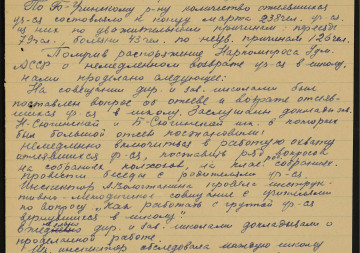 По Б-Учинскому р-ну количество отсеявшихся
уч-ся составляло к концу марта 238 чел. уч-ся.
из них по уважительным причинам: переезд
73 чел., болезни 38 чел., по неув. причинам 126 чел.
Получив распоряжение Наркомпроса Удм.
АССР о немедленном возврате уч-ся в школу,
нами проделано следующее:
На совещании дир. и зав. школами был
поставлен вопрос об отсеве и возврате отсеяв-
шихся уч-ся в школу. Заслушаны доклады зав.
и Б- школ в которых
был большой отсев постановили:
Немедленно включиться в работу по охвату
отсеявшихся уч-ся, поставив ряд вопросов
на собраниях колхозов, по
провести беседы с родителями уч-ся.
Инспектор провела инструк-
тивно-методическое совещание с учителями
по вопросу "Как работать с группой уч-ся
вернувшихся в школу"
дир. и зав. школами докладывали о
проделанной работе.
инспектор обследовала каждую школу